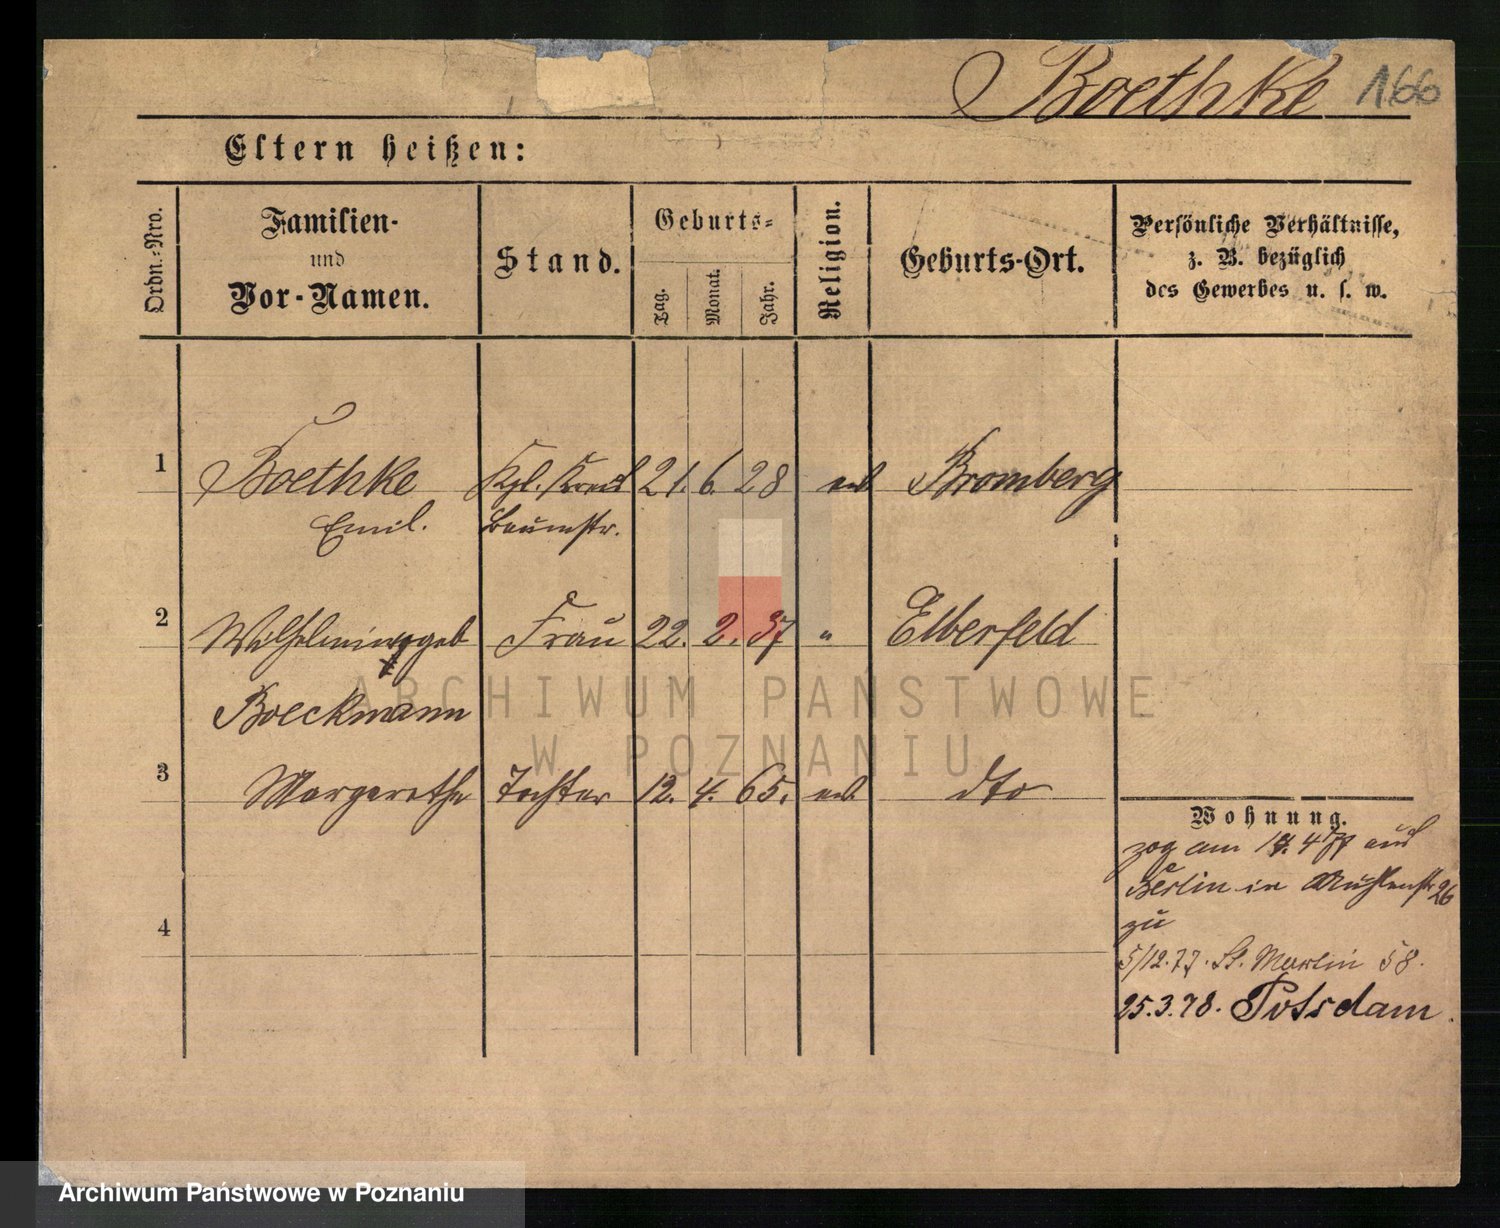 Boethke 166
Eltern heißen:
Ordn.-Nro.
Familien-
und
Vor-Namen.
Stand.
Geburts-
Tag.
Monat.
Jahr.
Religion.
Geburts-Ort.
Persönliche Verhältnisse,
z. B. bezüglich
des Gewerbes u. s. w.
1 Boethke Kgl. Kreis 21. 6. 28 Bromberg
Emil. Baumstr.
2 Wilhelmine geb Frau 22. 2. 37 " Elberfeld
Boeckmann
3 Margarethe Tochter 12. 4. 65. dto
Wohnung.
zog am 4 77 aus
Berlin in Mühlenstr 26
zu
4
5/12.77. St. Martin 58.
25.3.78. Potsdam.
ARCHIWUM PAŃSTWOWE
W POZNANIU
Archiwum Państwowe w Poznaniu